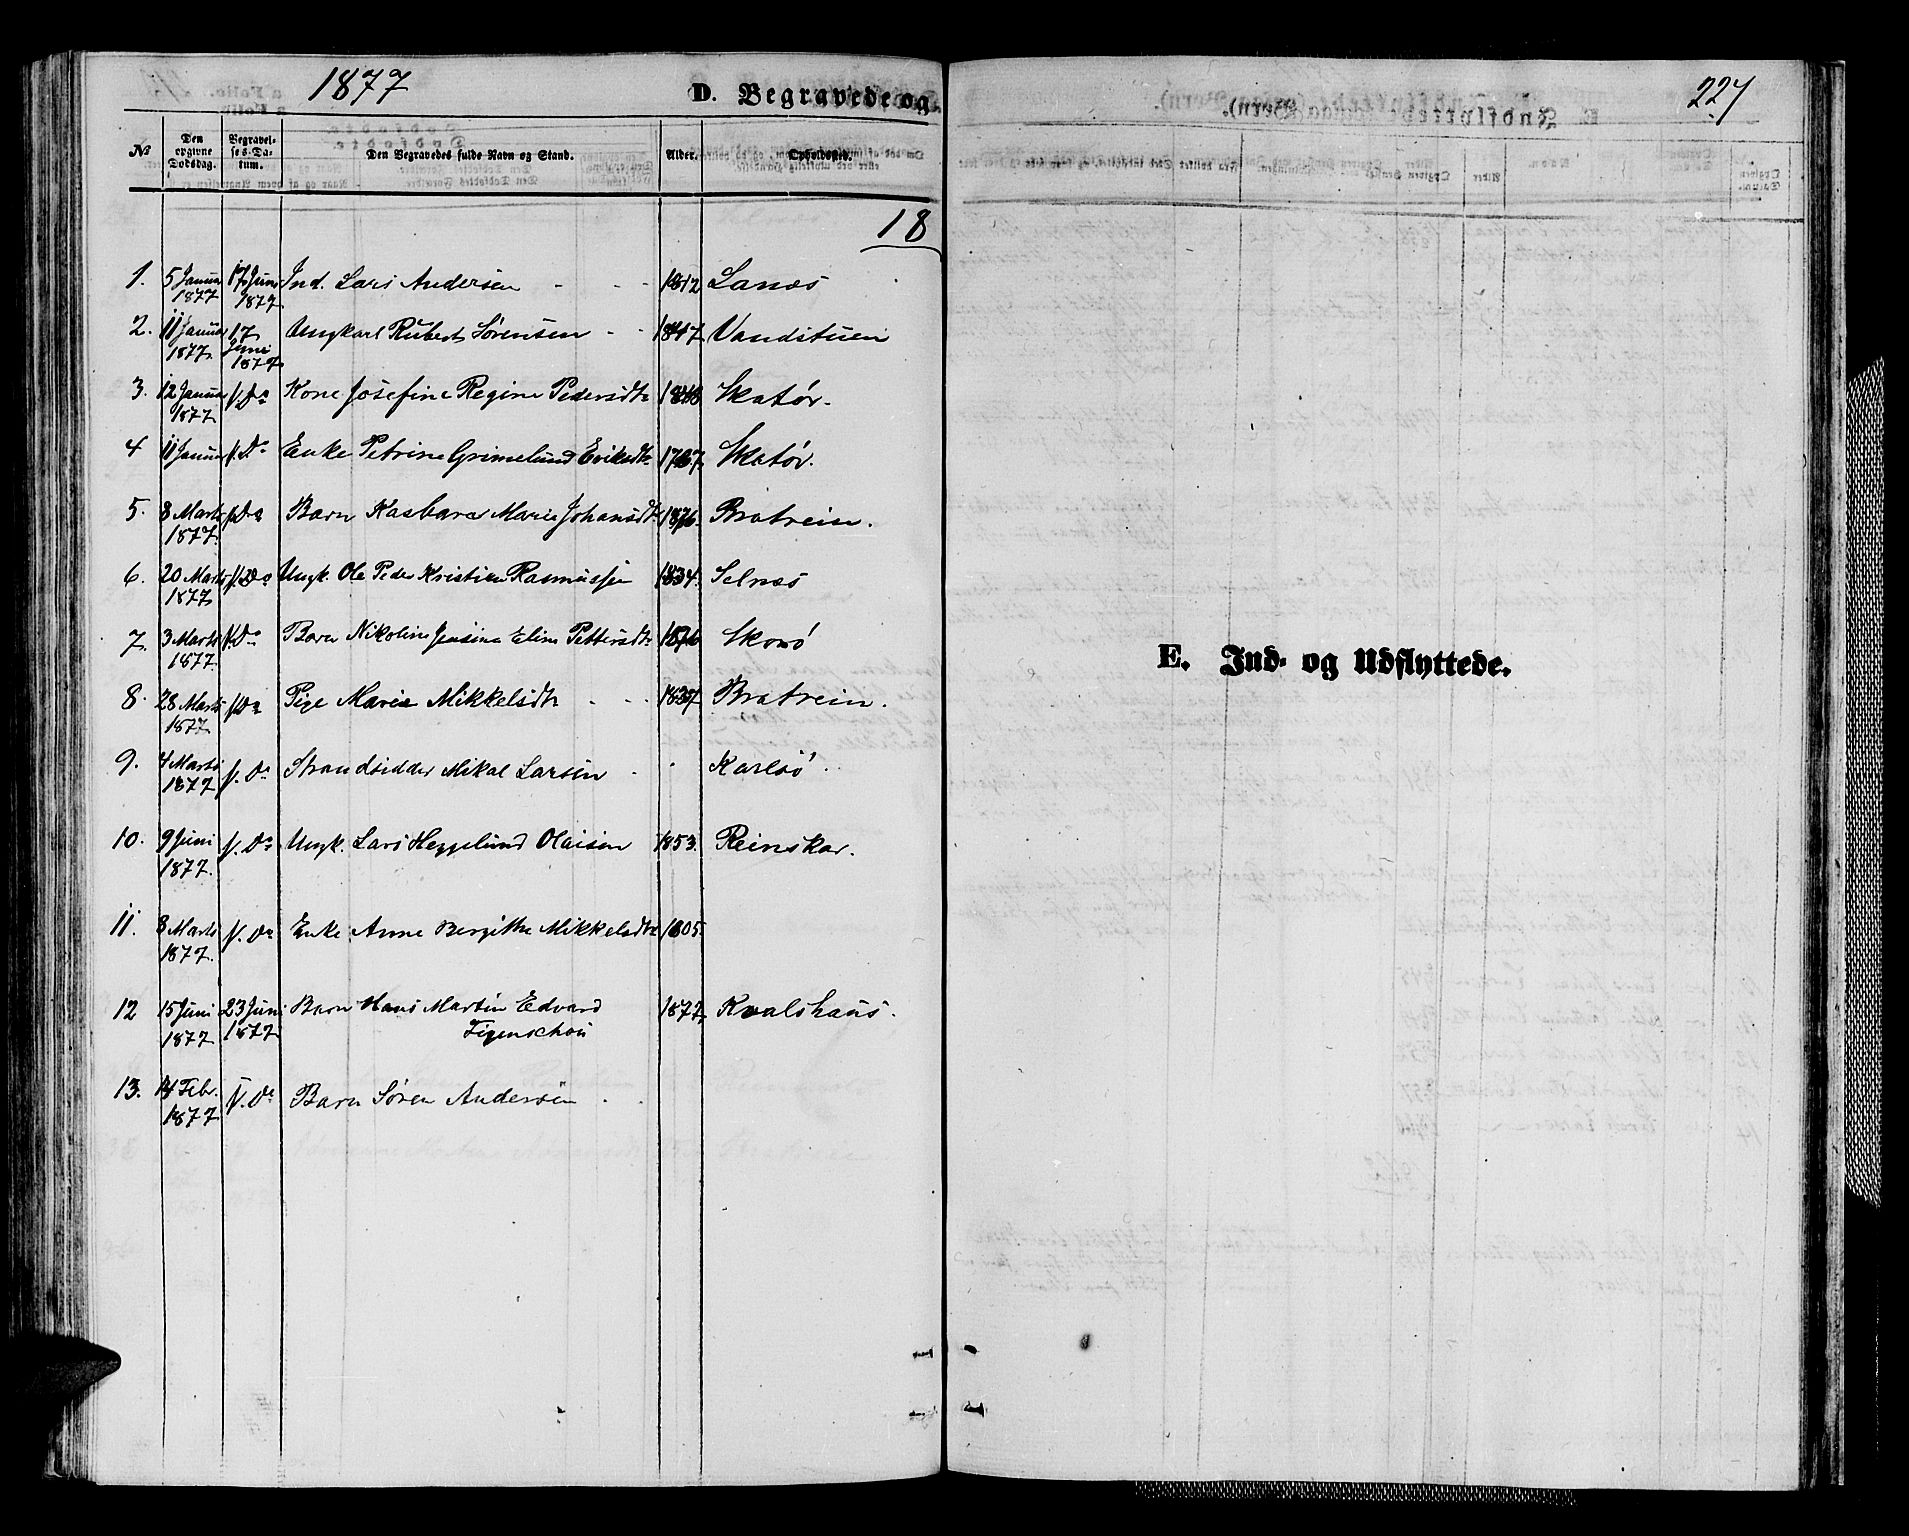 1877
D. Begravede og
№ Den opgivne Dødsdag. Begravelses-Datum. Den Begravedes fulde Navn og Stand. Alder. Opholdssted.
18
1. 5 Januar 1877 17 Juni 1877 Ind. Lars Andersen 1812 Lanæs
2. 11 Januar 1877. 17 Juni 1877 Ungkarl Rubert Sørensen 1847. Vandstuen
3. 12 Januar 1877 s. Do Kone Josefine Regine Pedersdtr Skatør.
4 11 Januar s. Do Enke Petrine Grimelund Eriksdtr Skatør.
5. 8 Marts 1877. s. Do Barn Kasbara Marie Johansdtr 1876. Bratrein.
6. 20 Marts 1877 s. Do Ungk. Ole Peder Kristian Rasmussen 1834. Selnæs
7. 3 Marts 1877. s. Do Barn Nikoline Jensine Eline Pettersdtr 1876 Skorø
8. 28 Marts 1877 s. Do Pige Marie Mikkelsdtr 1837 Bratrein.
9. 4 Marts 1877 s. Do Strandsidder Mikal Larsen Karlsø
10. 9 Juni 1877 s. Do Ungk. Lars Heggelund Olaisen 1853. Reinskar.
11. 8 Marts 1877. s. Do Enke Anne Bergithe Mikkelsdtr 1805.
12 15 Juni 1877 23 Juni 1877 Barn Hans Martin Edvard 1877. Kvalshaus.
Figenschou
13. 14 Febr. 1877 s. Do Barn Søren Andersen
227
E. Ind- og Udflyttede.